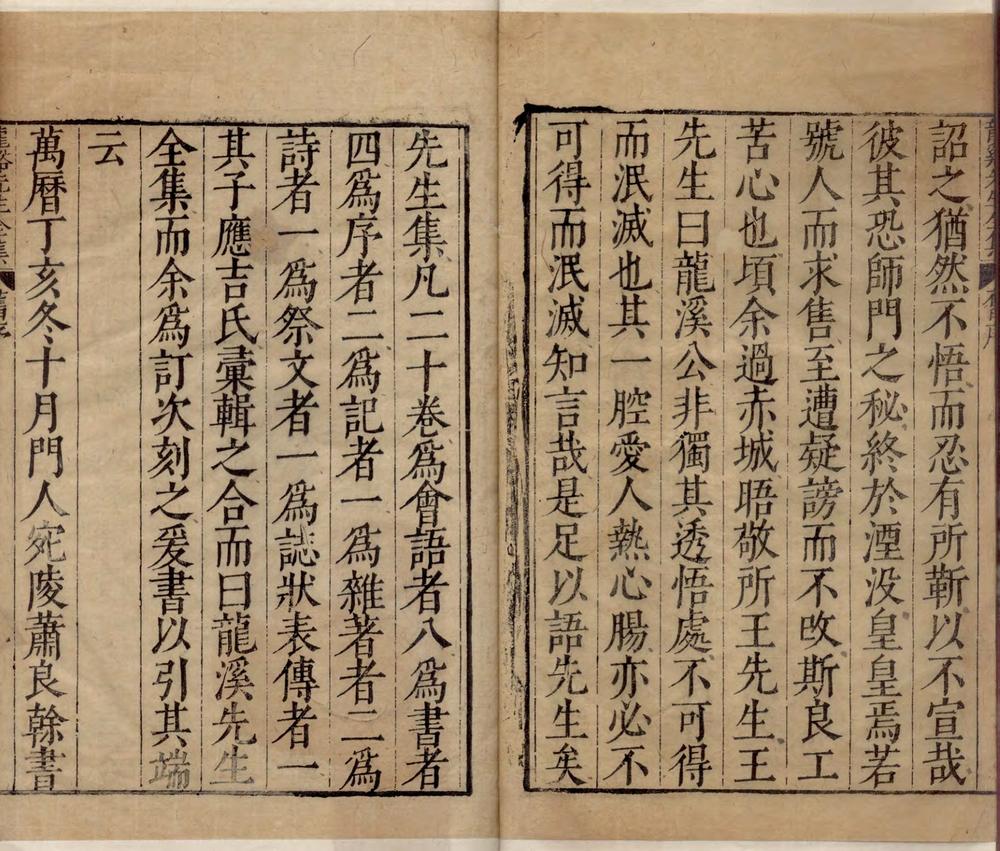 詔之猶然不悟而忍有所靳以不宣哉
彼其恐師門之秘終於湮没皇皇焉若
號人而求售至遭疑謗而不攺斯良工
苦心也頃余過赤城晤敬所王先生王
先生曰龍溪公非獨其透悟處不可得
而泯滅也其一腔愛人熱心腸亦必不
可得而泯滅知言哉是足以語先生矣
先生集凡二十卷爲會語者八爲書者
四爲序者二爲記者一爲雜著者二爲
詩者一爲祭文者一爲誌狀表傳者一
其子應吉氏彙輯之合而曰龍溪先生
全集而余爲訂次刻之爰書以引其端
云
萬曆丁亥冬十月門人宛陵蕭良榦書